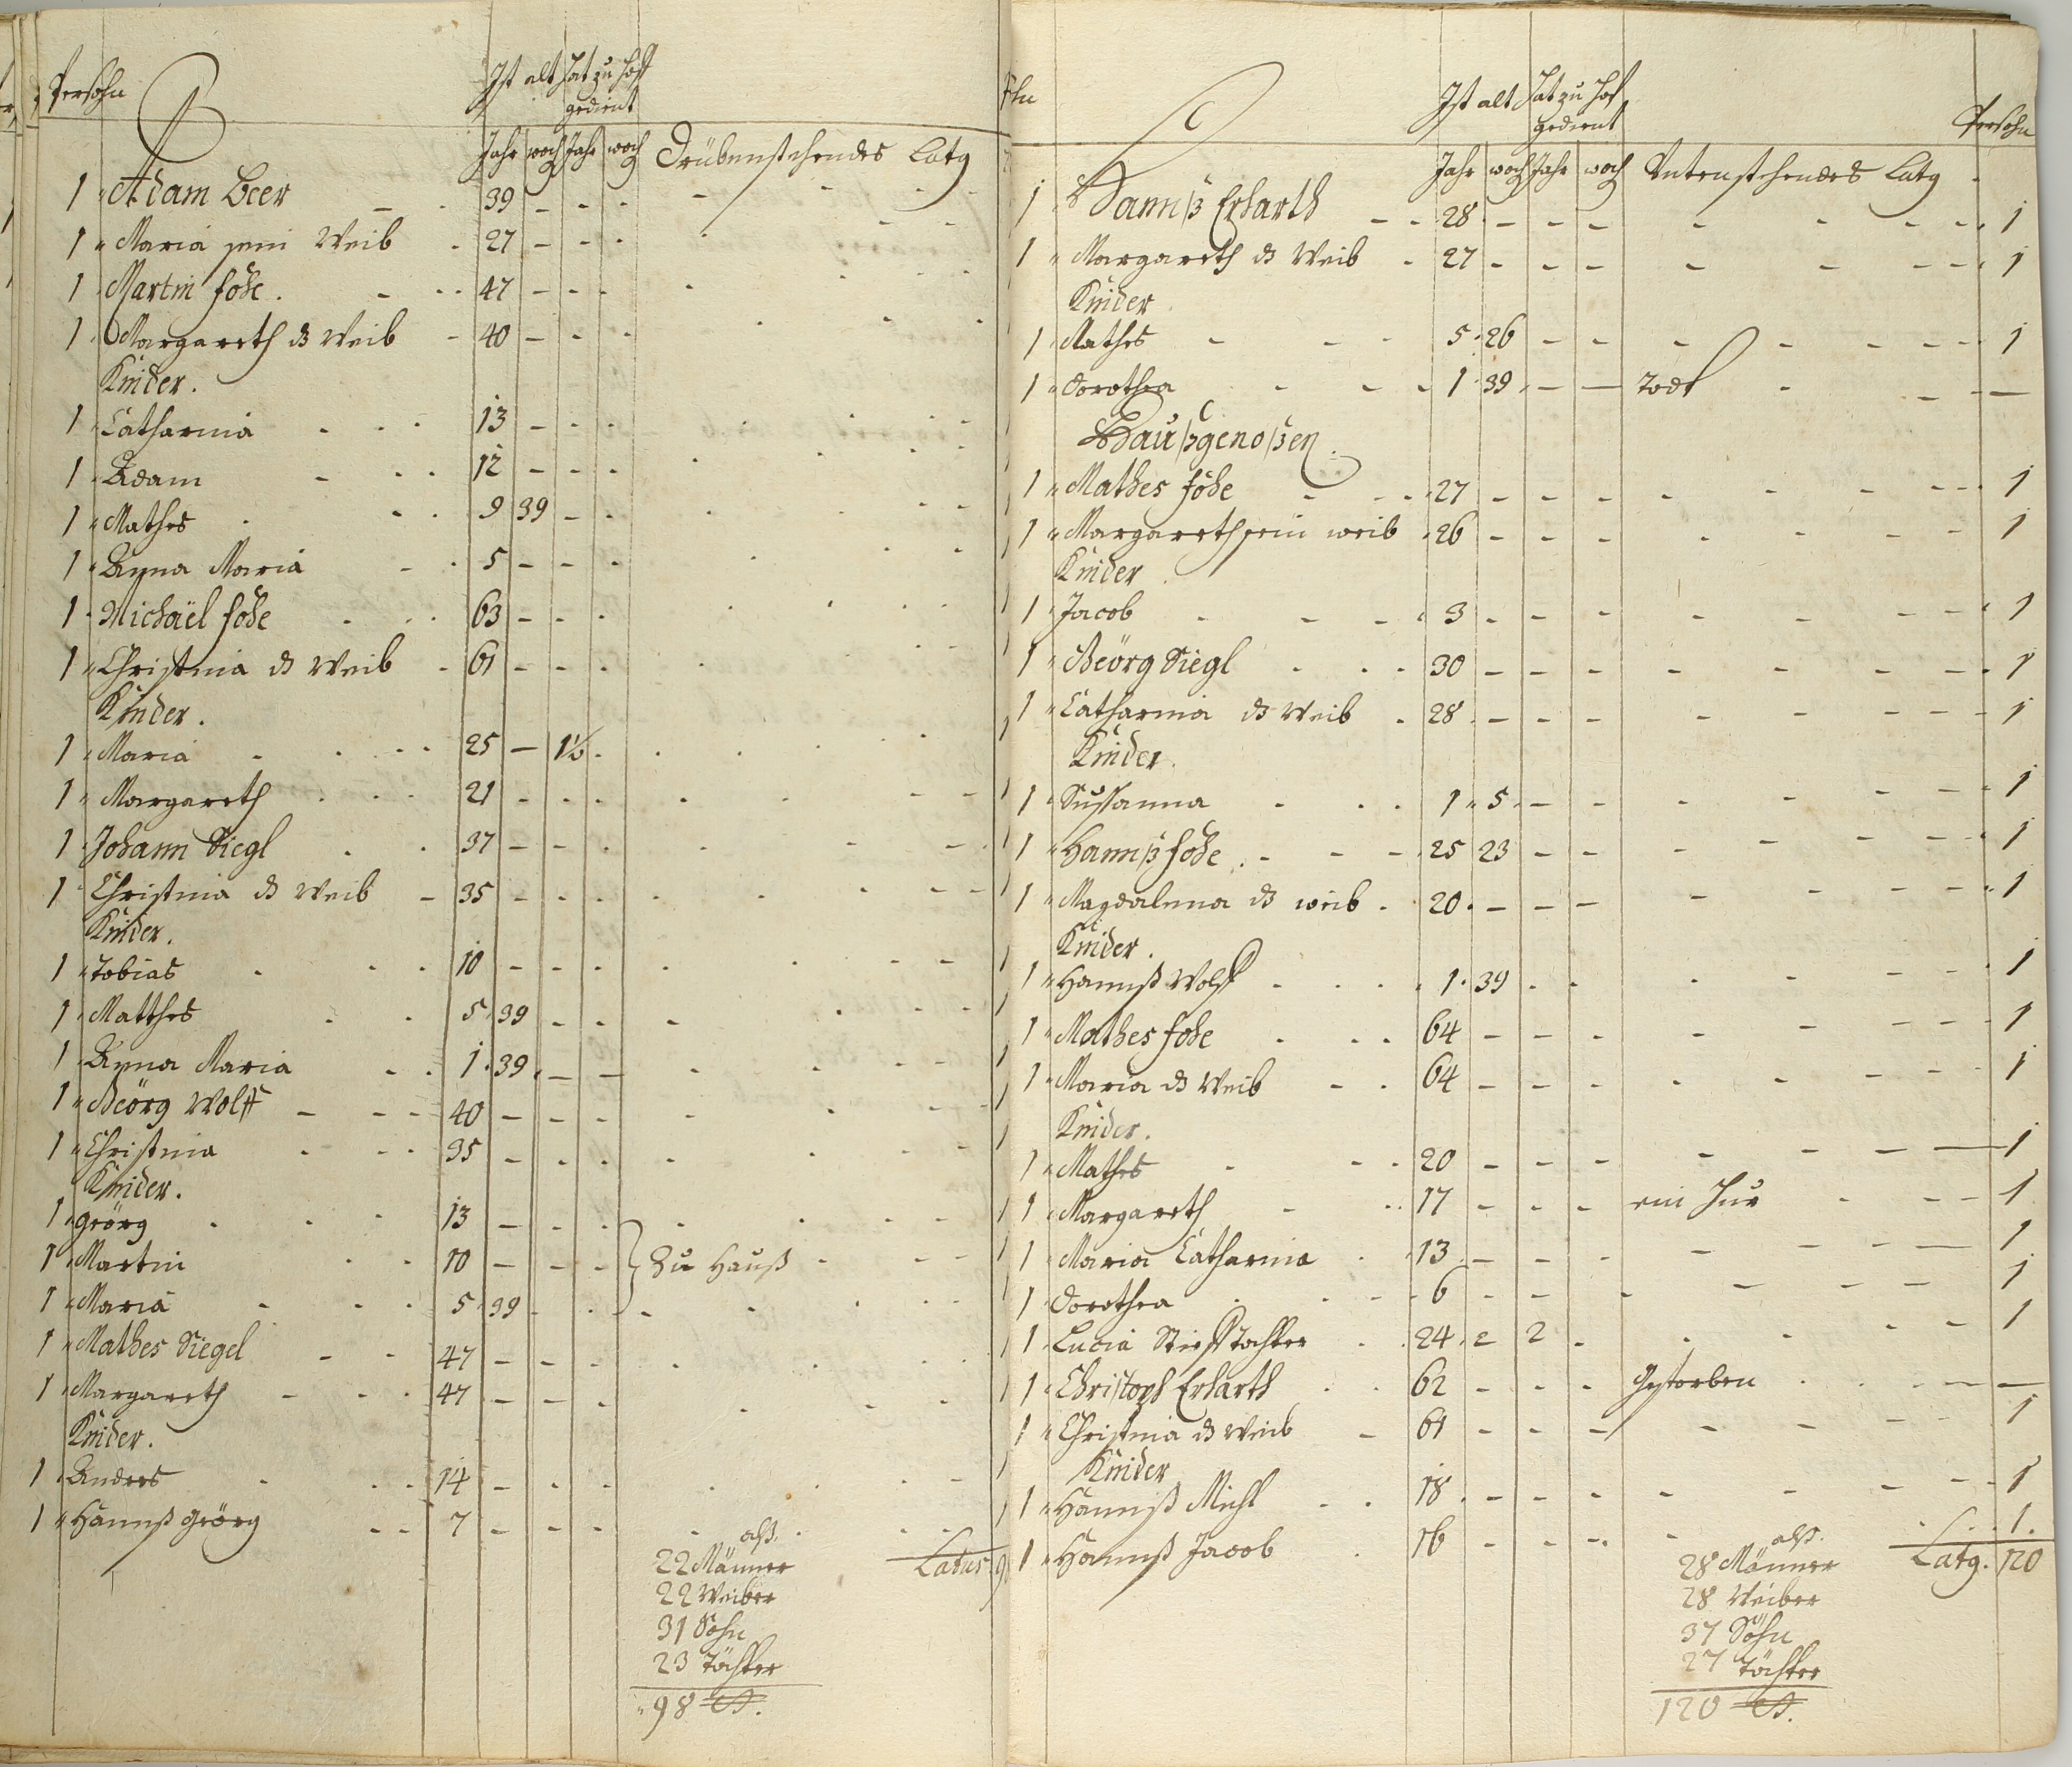 Persohn
Ist alt hat zu Hoff
gedient
Jahr woch Jahr woch Drübenstehendes Latg
1 Adam Beer - - 39 - - -
1 " Maria sein Weib - 27 - - -
1 Martin Föhe . - - - 47 - - -
1 Margareth ds Weib - 40 - - -
Kinder .
1 Catharina - - - 13 - - -
1 Adam - - - 12 - - -
1 " Mathes - - - 9 39 - -
1 " Anna Maria - - 5 - - -
1 Michäel Föhe - - - 63 - - -
1 " Christina ds Weib - 61 - - -
Kinder .
1 Maria - - - 25 - 1½ -
1 " Margareth - - - 21 - - -
1 Johann Siegl - - 37 - - -
1 Christina ds Weib - 35 - - -
Kinder .
1 " Tobias - - - 10 - - -
1 " Matthes - - 5 39 - -
1 Anna Maria - - 1 39 - -
1 " Geörg Wolff - - - 40 - - -
1 " Christina - - - 35 - - -
Kinder .
1 Geörg - - - 13 - - -
1 " Martin - - 10 - - - Zu Hauß
1 " Maria - - - 5 39 - -
1 " Mathes Siegel - - 47 - - -
1 " Margareth - - - 47 - - -
Kinder .
1 Andres - - - 14 - - -
1 " Hannß Geörg - - 7 - - -
alß.
22 Männer Latus 9
22 Weiber
31 Söhn
23 Töchter
98
Ist alt hat zu Hof
gedient Persohn
Jahr woch Jahr woch Untenstehendes Latg
1 Hannß Erharth - - 28 - - - 1
1 " Margareth ds Weib - 27 - - - 1
Kinder
1 Mathes - - - 5 26 - - 1
1 " Dorothea - - - 1 39 - - Todt - -
Haußgenoßen .
1 " Mathes Föhe - - - 27 - - - 1
1 " Margareth sein weib 26 - - - 1
Kinder
1 Jacob - - - 3 - - - 1
1 " Geörg Siegl - - - 30 - - - 1
1 " Catharina ds Weib - 28 - - - 1
Kinder .
1 Sussanna - - - 1 " 5 - - 1
1 " Hannß Föhe . - - - 25 23 - - 1
1 " Magdalena ds weib - 20 - - - 1
Kinder .
1 " Hannß Wolff - - - 1 39 - - 1
1 " Mathes Föhe - - - 64 - - - 1
1 " Maria ds Weib - - 64 - - - 1
Kinder .
1 " Mathes - - - 20 - - - 1
1 Margareth - - - 17 - - - 1
1 Maria Catharina - - 13 - - - 1
1 Dorothea - - - 6 - - - 1
1 Lucia Stieff Tochter - - 24 2 2 - 1
1 " Christoph Erharth - - 62 - - - Gestorben - -
1 " Christina ds Weib - 61 - - - 1
Kinder
1 " Hannß Michl - - 18 - - - 1
1 " Hannß Jacob - 16 - - - 1.
alß.
28 Männer Latg. 120
28 Weiber
37 Söhn
27 Töchter
120